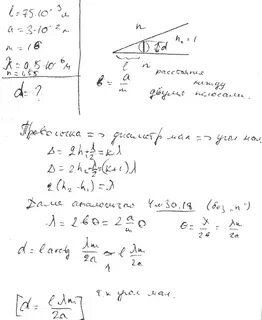 l = 75·10⁻³ м
a = 3·10⁻² м
m = 16
λ = 0,5·10⁻⁶ м
n = 1,55
d = ?
n
n₀ = 1
d
l
n
b = a/m
расстояние
между
двумя полосами.
Проволочка => диаметр мал => угол мал
Δ = 2h₁+λ/2 = kλ
Δ = 2h₂+λ/2 = (k+1)λ
2(h₂-h₁) = λ
Далее аналогично 4м30.18 (без „n")
λ = 2bΘ = 2 a/m Θ
Θ = λ/2b = λm/2a
d = l arctg λm/2a ≈ l λm/2a
[d = lλm/2a]
угол мал.